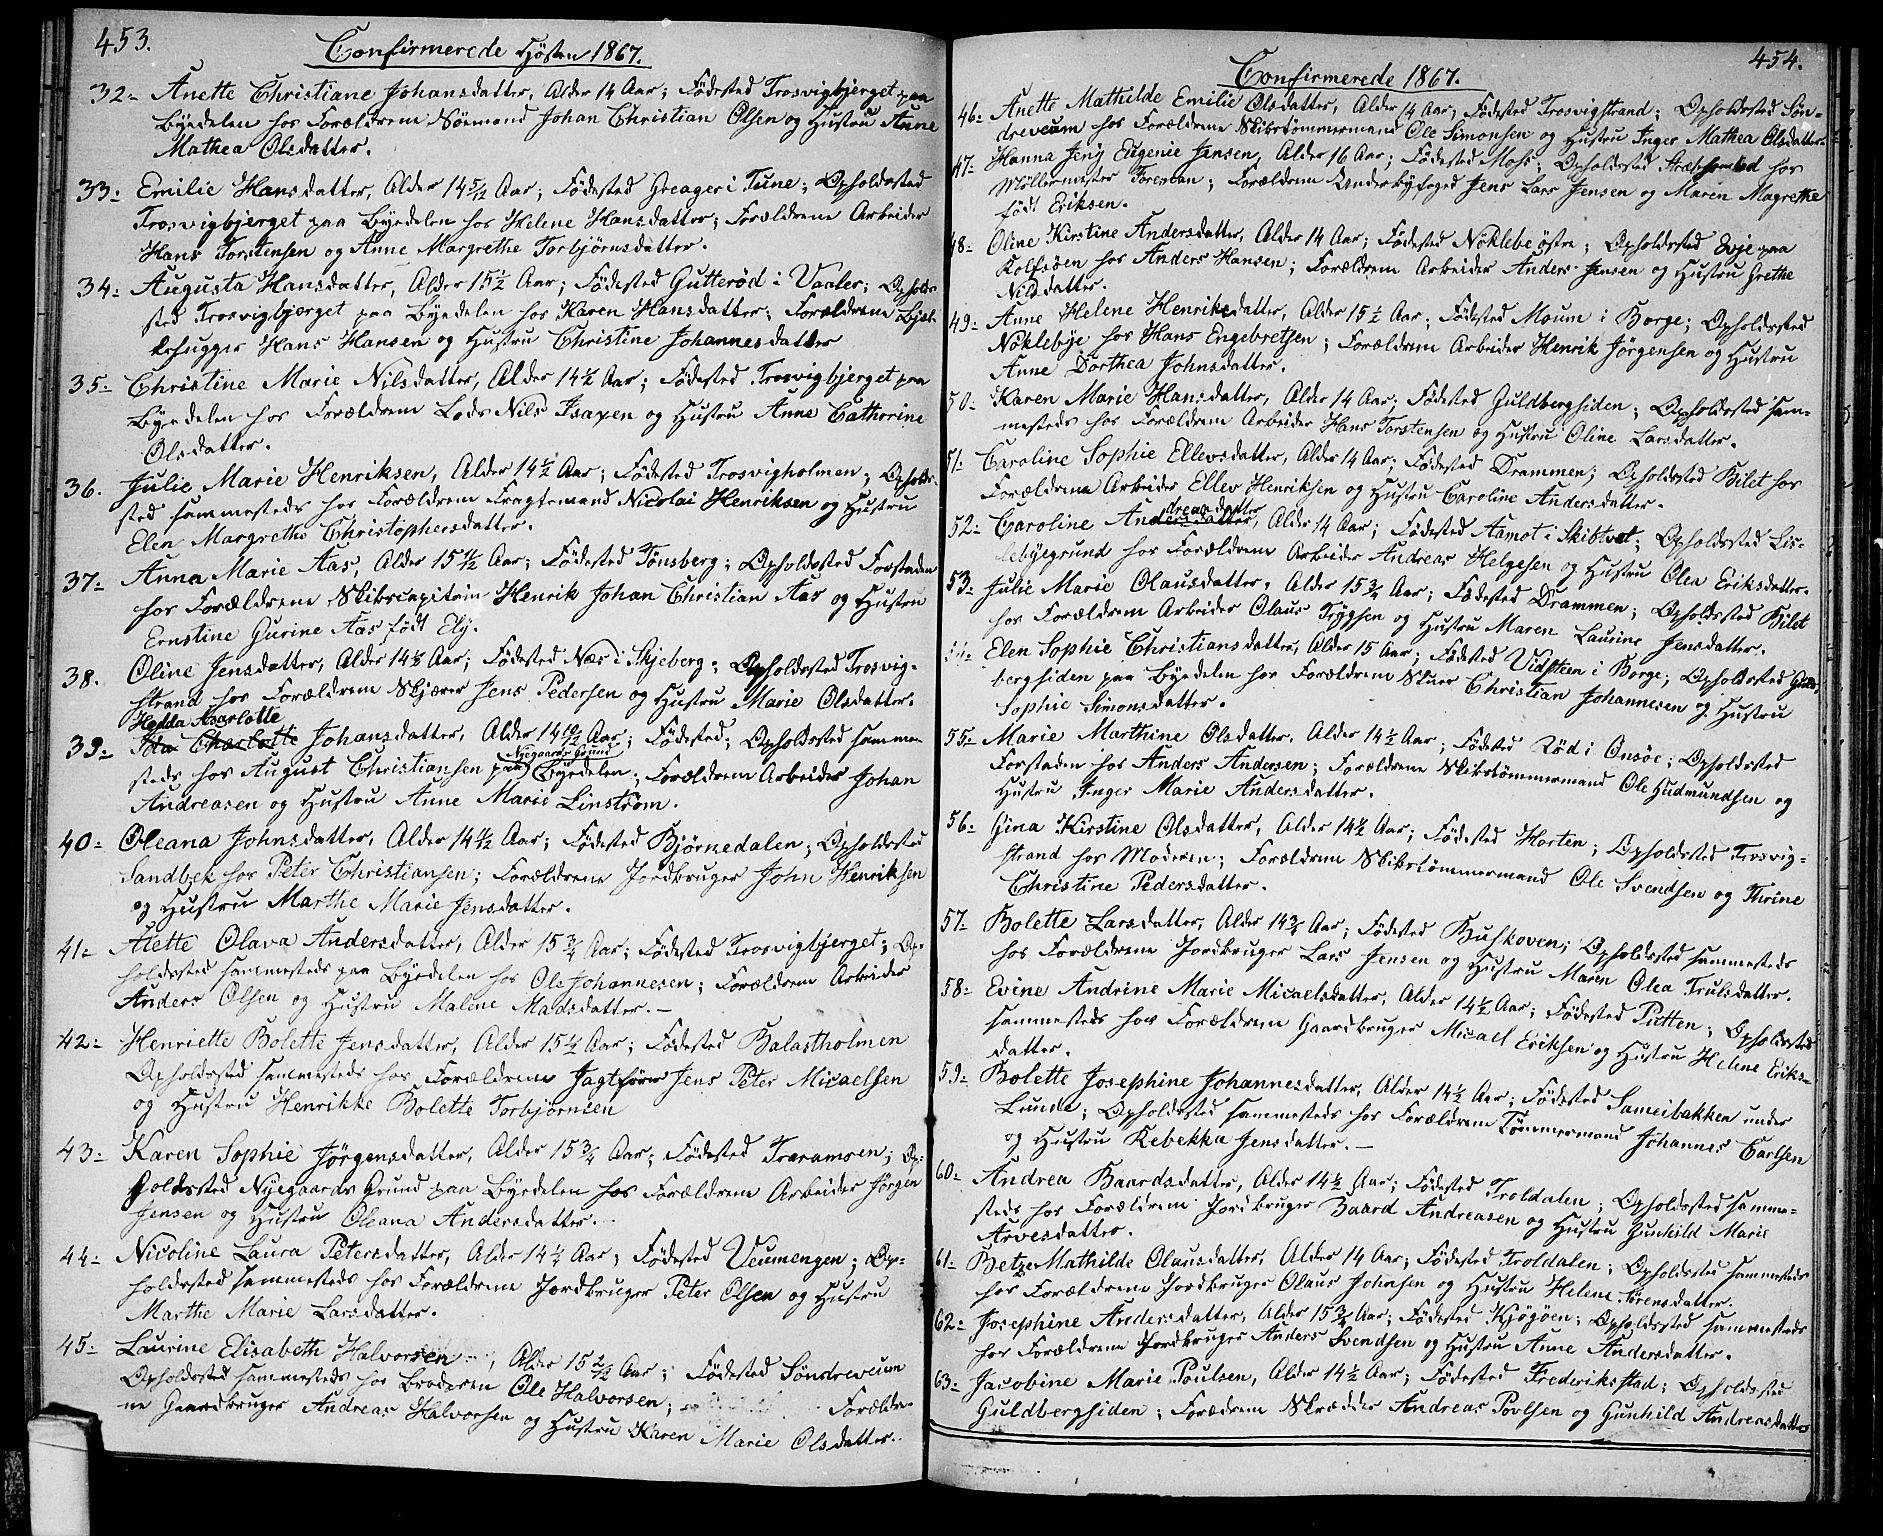 453.
Confirmerede Høsten 1867.
32- Anette Christiane Johansdatter, Alder 14 Aar; Fødested Trosvigbjerget paa
Byedelen hos Forældrene Sømand Johan Christian Olsen og Hustru Anne
Mathea Olsdatter.
33- Emilie Hansdatter, Alder 14 5/12 Aar; Fødested Greager i Tune; Opholdssted
Trosvigbjerget paa Byedelen hos Helene Hansdatter; Forældrene Arbeider
Hans Torstensen og Anne Margrethe Torbjørnsdatter.
34- Augusta Hansdatter, Alder 15 1/2 Aar; Fødested Gutterød i Vaaler; Opholds-
sted Trosvigbjerget paa Byedelen hos Karen Hansdatter; Forældrene Bjel-
kehugger Hans Hansen og Hustru Christine Johannesdatter
35- Christine Marie Nilsdatter, Alder 14 1/2 Aar; Fødested Trosvigbjerget paa
Byedelen hos Forældrene Lods Nils Isaxen og Hustru Anne Catherine
Olsdatter.
36. Julie Marie Henriksen, Alder 14 1/2 Aar; Fødested Trosvigholmen; Opholds-
sted sammesteds hos Forældrene Fragtemand Nicolai Henriksen og Hustru
Elen Margrethe Christophersdatter.
37- Anna Marie Aas, Alder 15 11/12 Aar; Fødested Tønsberg; Opholdssted Forstaden
hos Forældrene Skibscapitain Henrik Johan Christian Aas og Hustru
Ernstine Gurine Aas født Ely.
38. Oline Jensdatter, Alder 14 1/2 Aar; Fødested Næs i Skjeberg; Opholdssted Trosvig-
strand hos Forældrene Skjærer Jens Pedersen og Hustru Marie Olsdatter.
Hedda Charlotte
39- Ida Charlotte Johansdatter, Alder 14 10/12 Aar; Fødested; Opholdssted samme-
Nygaards Grund
steds hos August Christiansen paa Byedelen; Forældrene Arbeider Johan
Andreasen og Hustru Anne Marie Linstrøm.
40- Oleana Johnsdatter, Alder 14 11/12 Aar; Fødested Bjørnedalen; Opholdssted
Sandbek hos Peter Christiansen; Forældrene Jordbruger John Henriksen
og Hustru Marthe Marie Jensdatter.
41- Alette Olava Andersdatter, Alder 15 3/4 Aar; Fødested Trosvigbjerget; Op-
holdssted sammesteds paa Byedelen hos Ole Johannesen; Forældrene Arbeider
Anders Olsen og Hustru Malene Madsdatter. —
42- Henriette Bolette Jensdatter, Alder 15 1/4 Aar; Fødested Balastholmen
Opholdssted sammesteds hos Forældrene Jagtfører Jens Peter Micaelsen
og Hustru Henrikke Bolette Torbjørnsen
43- Karen Sophie Jørgensdatter, Alder 15 3/4 Aar; Fødested Traramoen; Op-
holdssted Nyegaards Grund paa Byedelen hos Forældrene Arbeider Jørgen
Jensen og Hustru Oleana Andersdatter.
44- Nicoline Laura Petersdatter, Alder 14 1/4 Aar; Fødested Veumengen; Op-
holdssted sammesteds hos Forældrene Jordbruger Peter Olsen og Hustru
Marthe Marie Larsdatter.
45- Laurine Elisabeth Halvorsen, Alder 15 2/12 Aar; Fødested Søndreveum
Opholdssted sammesteds hos Broderen Ole Halvorsen; Foreldre-
ne Gaardbruger Andreas Halvorsen og Hustru Karen Marie Olsdatter.
454.
Confirmerede 1867.
46- Anette Mathilde Emilie Olsdatter, Alder 14 Aar; Fødested Trosvigstrand; Opholdssted Søn-
dreveum hos Forældrene Skibstømmermand Ole Simonsen og Hustru Inger Mathea Olsdatter.
47- Hanna Jeny Eugenie Jensen, Alder 16 Aar; Fødested Mohs; Opholdssted hos
Møllermester Foreman; Forældrene Underbyfoged Jens Lars Jensen og Maren Magrethe
født Eriksen.
48- Oline Kirstine Andersdatter, Alder 14 Aar; Fødested Nøklebe østre; Opholdssted Evje paa
Rolfsøen hos Anders Hansen; Forældrene Arbeider Anders Jensen og Hustru Grethe
Nilsdatter.
49- Anne Helene Henriksdatter, Alder 15 1/2 Aar; Fødested Moum i Borge; Opholdssted
Nøklebye hos Hans Engebretsen; Forældrene Arbeider Henrik Jørgensen og Hustru
Anne Dorthea Johnsdatter.
50- Karen Marie Hansdatter, Alder 14 Aar; Fødested Guldbergsiden; Opholdssted sam-
mesteds hos Forældrene Arbeider Hans Torstensen og Hustru Oline Larsdatter.
51- Caroline Sophie Ellevsdatter, Alder 14 Aar; Fødested Drammen; Opholdssted Bilet hos
Forældrene Arbeider Ellev Henriksen og Hustru Caroline Andersdatter.
dreasdatter
52- Caroline Andersdatter, Alder 14 Aar; Fødested Aamot i Skibtvet; Opholdssted Lis-
lebyegrund hos Forældrene Arbeider Andreas Helgesen og Hustru Olea Eriksdatter.
53- Julie Marie Olausdatter, Alder 15 3/4 Aar; Fødested Drammen; Opholdssted Bilet
hos Forældrene Arbeider Olaus Trygsen og Hustru Maren Laurine Jensdatter.
54- Elen Sophie Christiansdatter, Alder 15 Aar; Fødested Vidsteen i Borge; Opholdssted Guld-
bergsiden paa Byedelen hos Forældrene Skuer Christian Johannesen og Hustru
Sophie Simonsdatter.
55- Marie Marthine Olsdatter, Alder 14 1/2 Aar; Fødested Rød i Onsøe; Opholdssted
Forstaden hos Anders Andersen; Forældrene Skibstømmermand Ole Gudmundsen og
Hustru Inger Marie Andersdatter.
56- Gina Kirstine Olsdatter, Alder 14 1/2 Aar; Fødested Horten; Opholdssted Trosvig-
strand hos Moderen; Forældrene Skibstømmermand Ole Svendsen og Thrine
Christine Pedersdatter.
57- Bolette Larsdatter, Alder 14 3/4 Aar; Fødested Buskoven; Opholdssted sammesteds
hos Forældrene Jordbruger Lars Jensen og Hustru Maren Olea Trulsdatter.
58- Evine Andrine Marie Micaelsdatter, Alder 14 1/2 Aar; Fødested Putten; Opholdssted
sammesteds hos Forældrene Gaardbruger Micael Eriksen og Hustru Helene Eriks-
datter.
59- Bolette Josephine Johannesdatter, Alder 14 1/2 Aar; Fødested Sameibakken under
Lunde; Opholdssted sammesteds hos Forældrene Tømmermand Johannes Carlsen
og Hustru Rebekka Jensdatter. —
60- Andrea Baardsdatter, Alder 14 1/2 Aar; Fødested Troldalen; Opholdssted samme-
steds hos Forældrene Jordbruger Baard Andreasen og Hustru Gunhild Marie
Arvesdatter.
61- Betzer Mathilde Olausdatter, Alder 14 Aar; Fødested Troldalen; Opholdssted sammesteds
hos Forældrene Jordbruger Olaus Johnsen og Hustru Helene Sørensdatter.
62- Josephine Andersdatter, Alder 15 3/4 Aar; Fødested Kjøgøen; Opholdssted sammesteds
hos Forældrene Jordbruger Anders Svendsen og Hustru Anne Andersdatter.
63- Jacobine Marie Poulsen, Alder 14 1/2 Aar; Fødested Frederiksstad; Opholdssted
Guldbergsiden; Forædrene Skrædder Andreas Povlsen og Gunhild Andreasdatter